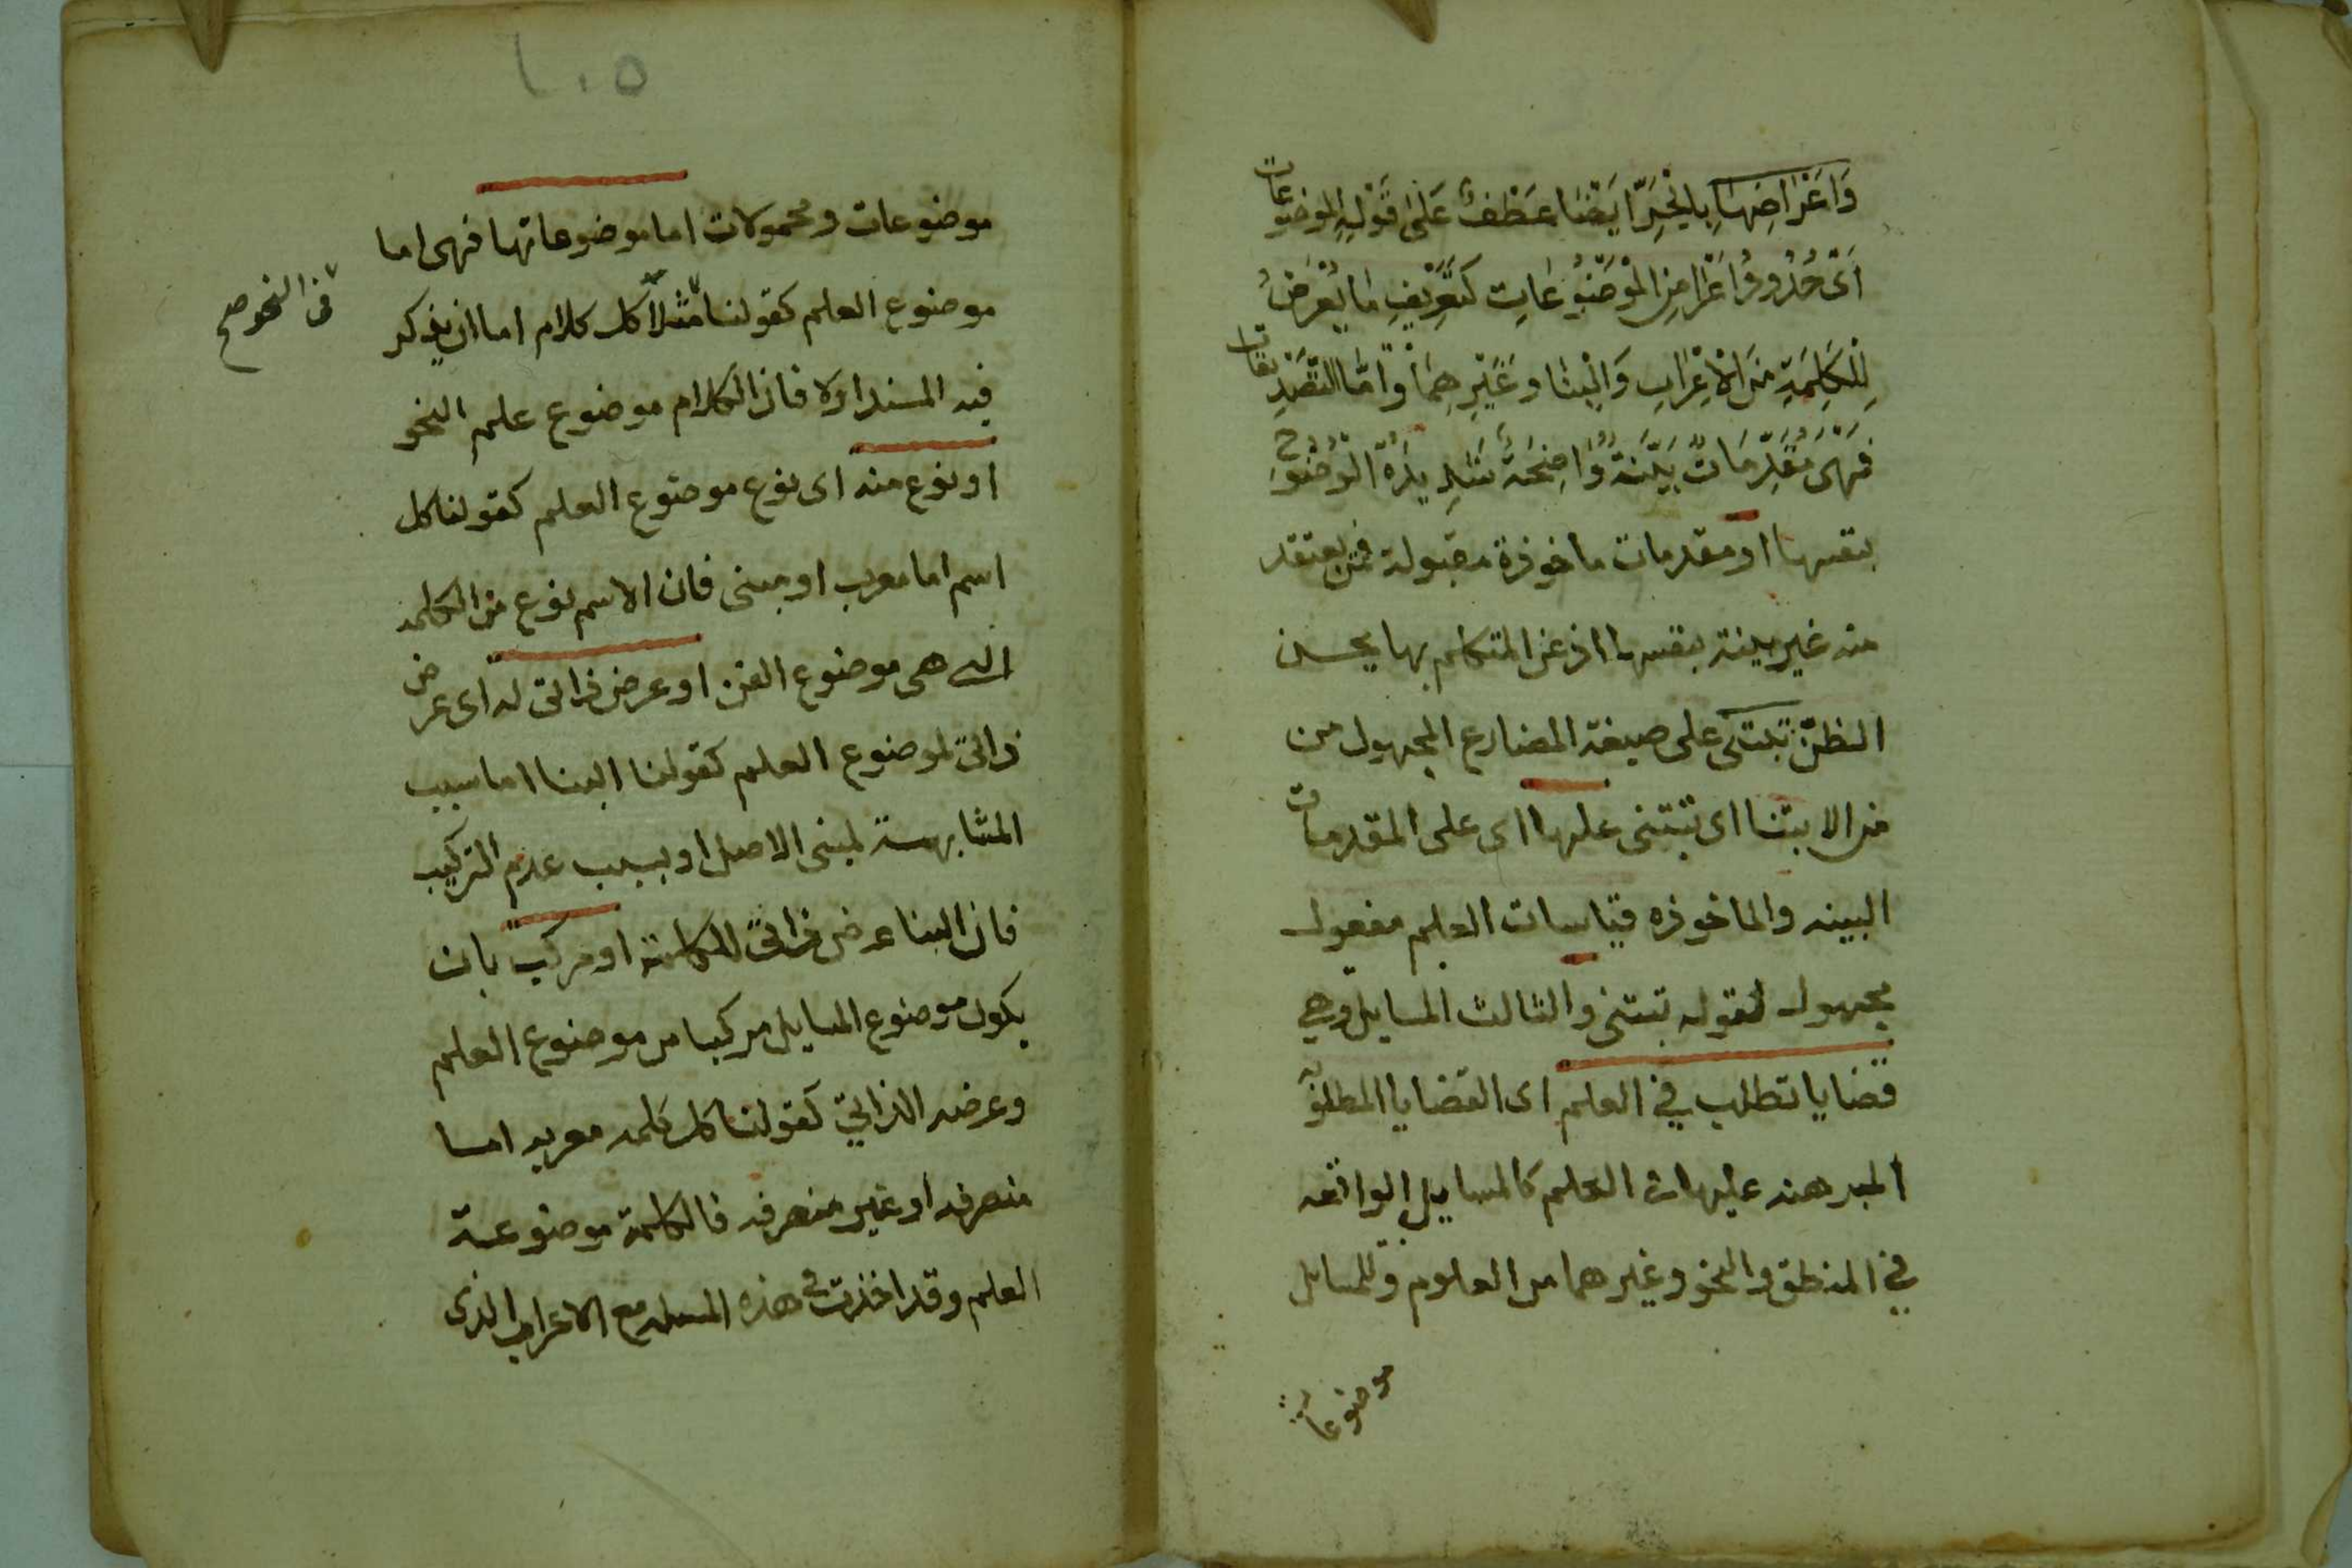 وَاَعْرَاضِهَا بِالْجَرِّ اَيْضًا عَطْفٌ عَلَىٰ قَوْلِهِ الموضوعات
اَىْ حُدُودُ اَعْرَاضِ الْمَوْضُوعَاتِ كَتَعْرِيفِ مَا يُعْرَضُ
لِلْكَلِمَةِ مِنَ الْاِعْرَابِ وَالْبِنَاءِ وَغَيْرِهِمَا وَاَمَّا التَّصْدِيقَات
فَهِىَ مُقَدِّمَاتٌ بَيِّنَةٌ وَاضِحَةٌ شَدِيدَةُ الْوُضُوحِ
بنفسها او مقدمات ماخوذة مقبولة ممن يعتقد
منه غير بينة بنفسها اذ عن المتكلم بها يحسن
الظنّ تبتنى على صيغة المضارع المجهول من
من الابتنا اى تبتنى عليها اى على المقدمات
البينه والماخوذه قياسات العلم مفعول
مجهول لقوله تبتنى والثالث المسايل وهي
قضايا تطلب في العلم اى القضايا المطلوبه
المبرهنه عليها في العلم كالمسايل الواقعه
في المنطق والنحو وغيرهما من العلوم وللمسايل
موضوعات
١٠٥
موضوعات ومحمولات اما موضوعاتها فهى اما
موضوع العلم كقولنا مثلا كل كلام اما ان يذكر
من النحو صح
فيه المسند اولا فان الكلام موضوع علم النحو
او نوع منه اى نوع موضوع العلم كقولنا كل
اسم اما معرب او مبنى فان الاسم نوع من الكلمه
التى هى موضوع الفن او عرض ذاتى له اى عرض
ذاتىّ لموضوع العلم كقولنا البنا اما سبب
المشابهة لمبنى الاصل او بسبب عدم التركيب
فان البنا عرض ذاتىّ للكلمة او مركب بان
يكون موضوع المسايل مركبا من موضوع العلم
وعرضه الذاتي كقولنا كل كلمه معربه اما
منصرفه او غير منصرفه فالكلمة موضوعة
العلم وقد اخذت في هذه المسله مع الاعراب الذى